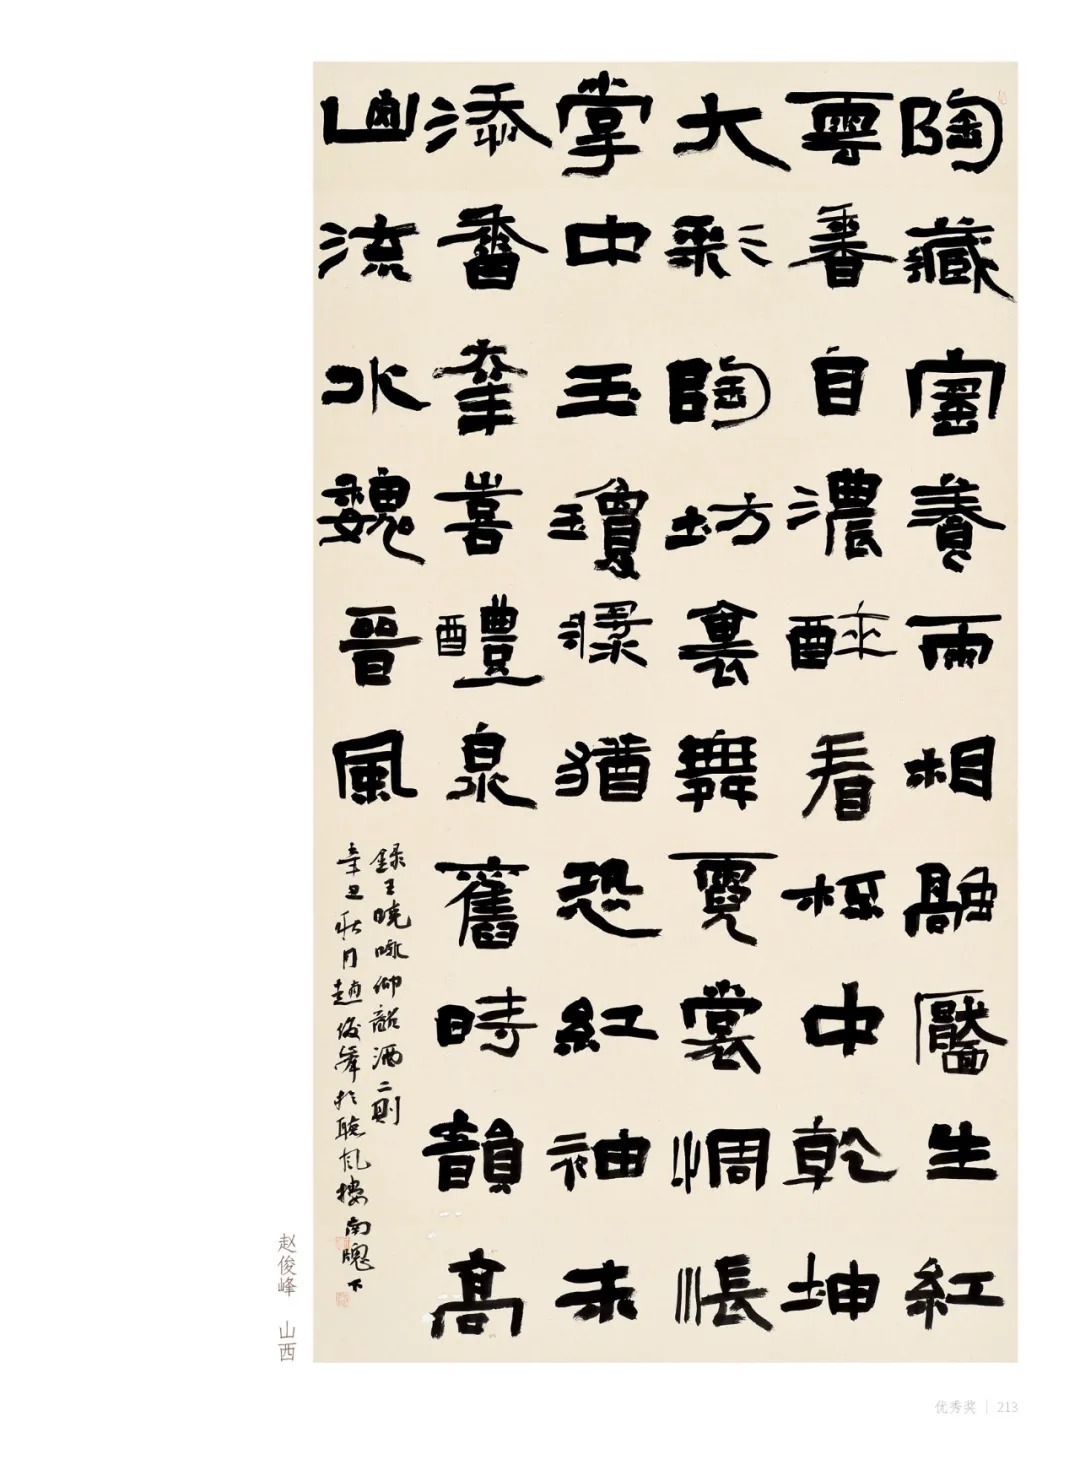 陶藏窖養兩相融靨生紅
雲香自濃醉看杯中乾坤
大彩陶坊裏舞霓裳惆悵
掌中玉瓊漿猶恐紅袖未
添香幸喜醴泉舊時韻高
山流水魏晉風
錄王曉咏仰韶酒二則
辛丑秋月趙俊峰於聽風樓南牕下
赵俊峰 山西
优秀奖｜213